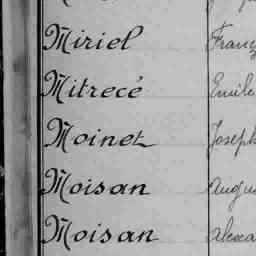 Miriel Franç
Mitrecé Emile
Moinet Joseph
Moisan Augus
Moisan alexa